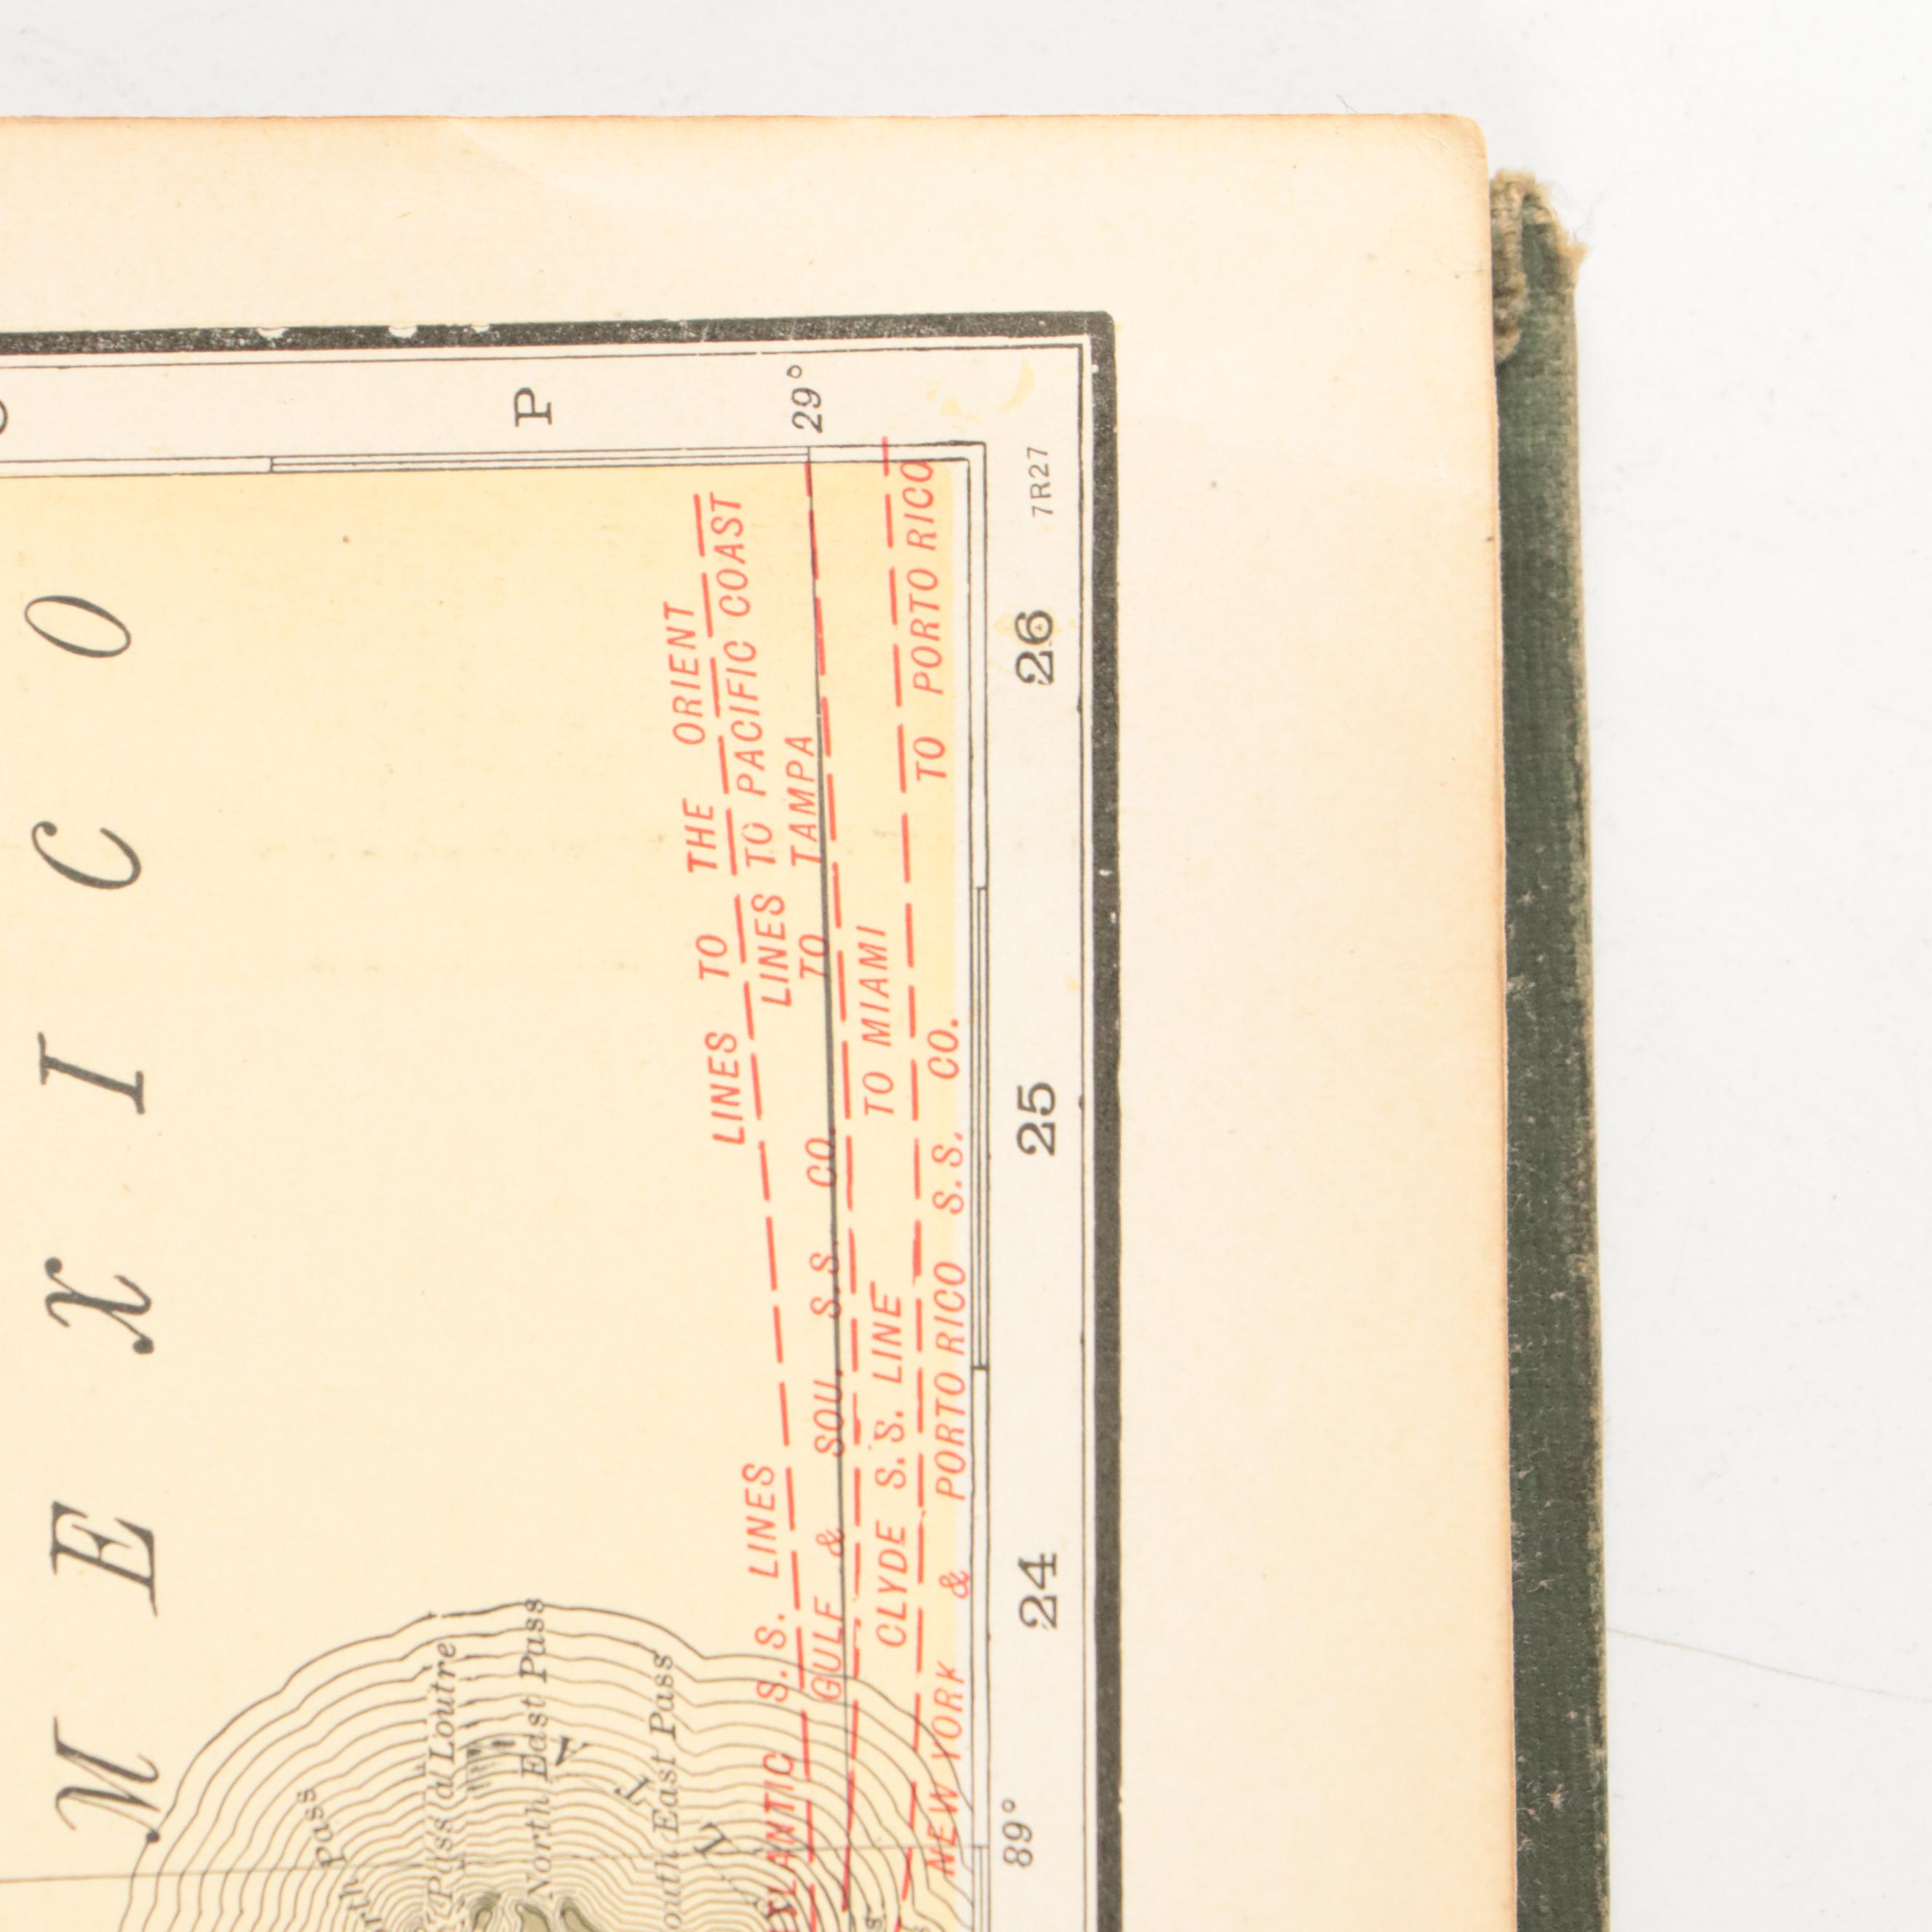 P
29°
7R27
M E X I C O
LINES TO THE ORIENT
LINES TO PACIFIC COAST
S.S. LINES
GULF & SOU. S.S CO. TO TAMPA
CLYDE S.S. LINE TO MIAMI
NEW YORK & PORTO RICO S.S. CO. TO PORTO RICO
26
25
24
89°
Pass
Pass a Loutre
North East Pass
East Pass